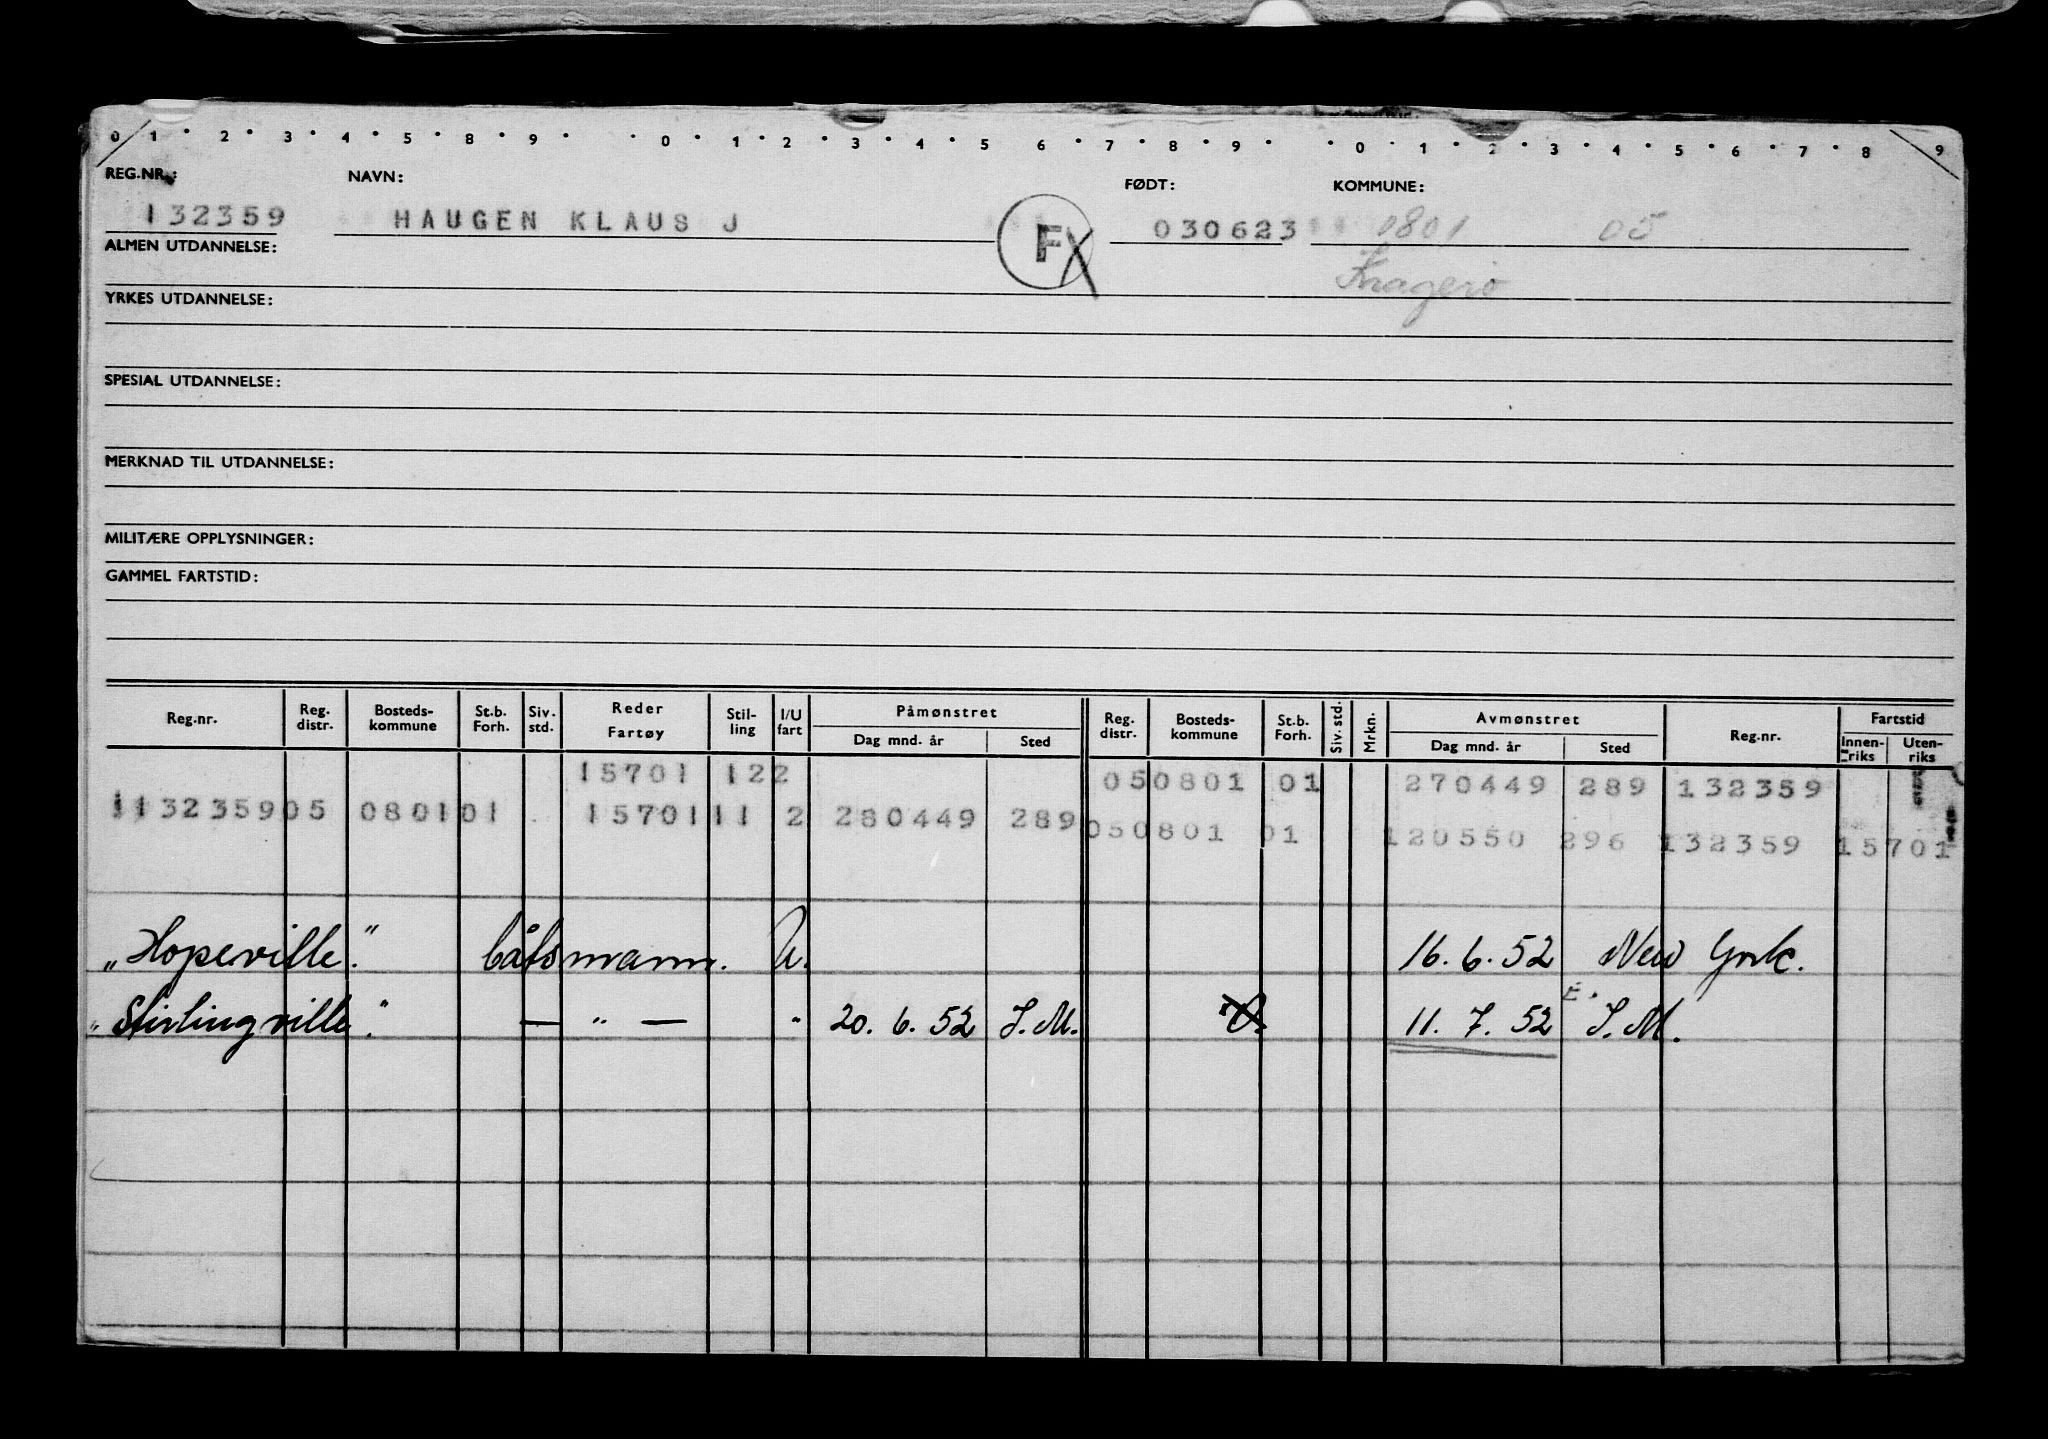 0 1 · 2 · 3 · 4 · 5 · 8 · 9 · · 0 · 1 · 2 · 3 · 4 · 5 · 6 · 7 · 8 · 9 · · 0 · 1 · 2 · 3 · 4 · 5 · 6 · 7 · 8 9
REG.NR.: NAVN: FØDT: KOMMUNE:
132359 HAUGEN KLAUS J F 030623 0801 05
ALMEN UTDANNELSE: Kragerö
YRKES UTDANNELSE:
SPESIAL UTDANNELSE:
MERKNAD TIL UTDANNELSE:
MILITÆRE OPPLYSNINGER:
GAMMEL FARTSTID:
Reg.nr. Reg. distr. Bosteds-kommune St.b. Forh. Siv. std. Reder Fartøy Stil-ling I/U fart Påmønstret Dag mnd. år Sted Reg. distr. Bosteds-kommune St.b. Forh. Siv. std. Mrkn. Avmønstret Dag mnd. år Sted Reg.nr. Fartstid Innen-riks Uten-riks
15701 122 050801 01 270449 289 132359
113235905 080101 15701 11 2 280449 289 050801 01 120550 296 132359 15701
„Hopeville." båtsmann. U. 16.6.52 New York.
„Stirlingville". — " — " 20.6.52 S.M. 11.7.52 S.M.